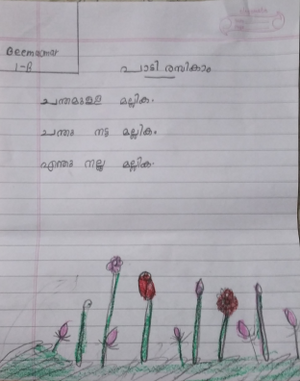 1-B
പാടി രസികാം
ചന്തമുള്ള മല്ലിക.
ചന്തു നട്ട മല്ലിക.
എന്തു നല്ല മല്ലിക.